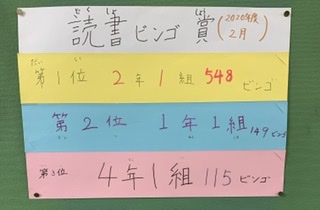 読書ビンゴ賞(2020年度2月)
第1位 2年1組 548ビンゴ
第2位 1年1組 149ビンゴ
第3位 4年1組 115ビンゴ